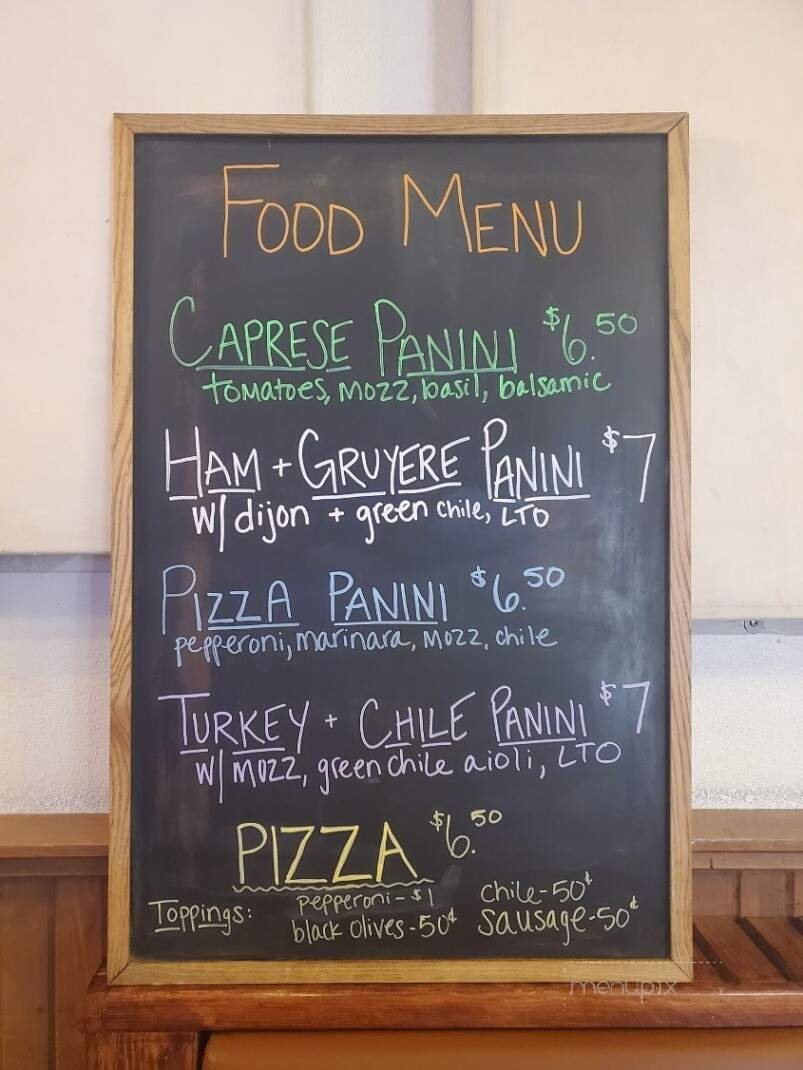 FOOD MENU
CAPRESE PANINI $6.50
tomatoes, mozz, basil, balsamic
HAM + GRUYERE PANINI $7
w/ dijon + green chile, LTO
PIZZA PANINI $6.50
pepperoni, marinara, mozz, chile
TURKEY + CHILE PANINI $7
w/ mozz, green chile aioli, LTO
PIZZA $6.50
Toppings: pepperoni-$1 chile-50¢
black olives-50¢ sausage-50¢
menupix